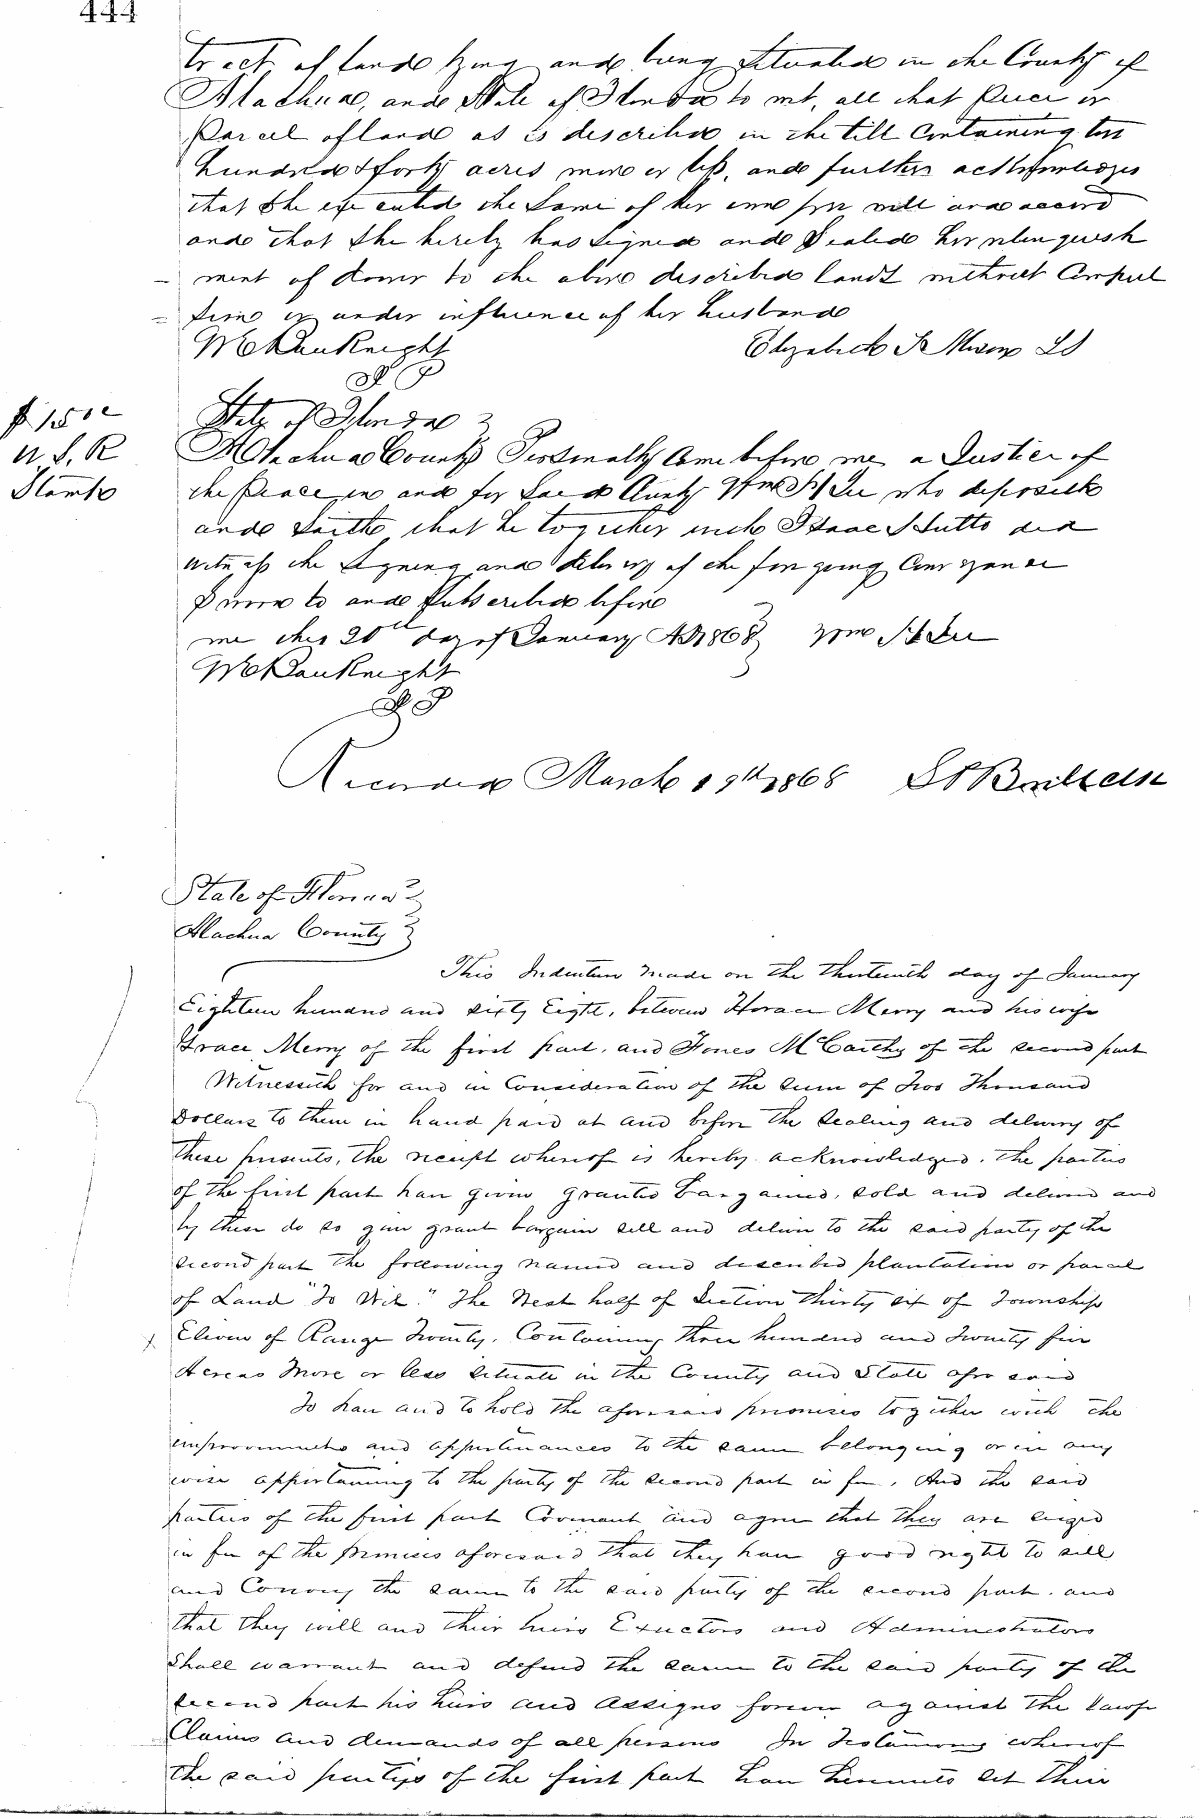 444
tract of land lying and being situated in the County of
Alachua, and State of Florida to wit, all that Piece or
Parcel of land as is described in the till Containing two
hundred & forty acres more or less, and further acknowledges
that She executed the Same of her own free will and accord
and that She hereby has Signed and Sealed her relinquish
ment of dower to the above described lands without Compul
sion or under influence of her husband
Wm McKnight Elizabeth S Mixon LS
JP
$1500
U. S. R
Stamp
State of Florida
Alachua County Personally Came before me a Justice of
the Peace in and for Said County Wm H Lee who deposeth
and Saith that he together with Isaac Hutto did
witness the Signing and delivery of the foregoing Conveyance
Sworn to and Subscribed before
me this 20th day of January AD 1868 Wm H Lee
JP
Recorded March 19th 1868
State of Florida
Alachua County
This Indenture made on the thirteenth day of January
Eighteen hundred and sixty Eight, between Horace Merry and his wife
Grace Merry of the first part, and Jones McCarthy of the second part
Witnesseth for and in Consideration of the sum of Two Thousand
Dollars to them in hand paid at and before the sealing and delivery of
these presents, the receipt whereof is hereby acknowledged. the parties
of the first part have given granted bargained, sold and delivered and
by these do so give grant bargain sell and deliver to the said party of the
second part the following named and described plantation or parcel
of Land "To Wit." The West half of Section Thirty six of Township
Eleven of Range Twenty. Containing three hundred and Twenty five
Acreas More or less situate in the County and State afore said
To have and to hold the aforesaid premises together with the
improvements and appurtinances to the same belonging or in any
wise appertaining to the party of the second part in fee. And the said
parties of the first part Covenant and agree that they are siezed
in fee of the premises aforesaid that they have good right to sell
and Convey the same to the said party of the second part. and
that they will and their heirs Exuctors and Administrators
Shall warrant and defend the same to the said party of the
second part his heirs and assigns forever against the lawful
Claims and demands of all persons In Testimony whereof
the said parties of the first part have hereunto set their